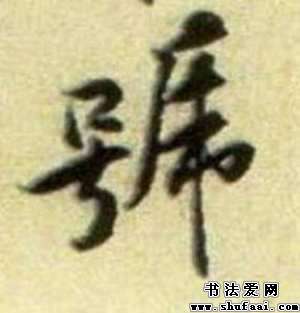 號
书法爱网
www.shufaai.com